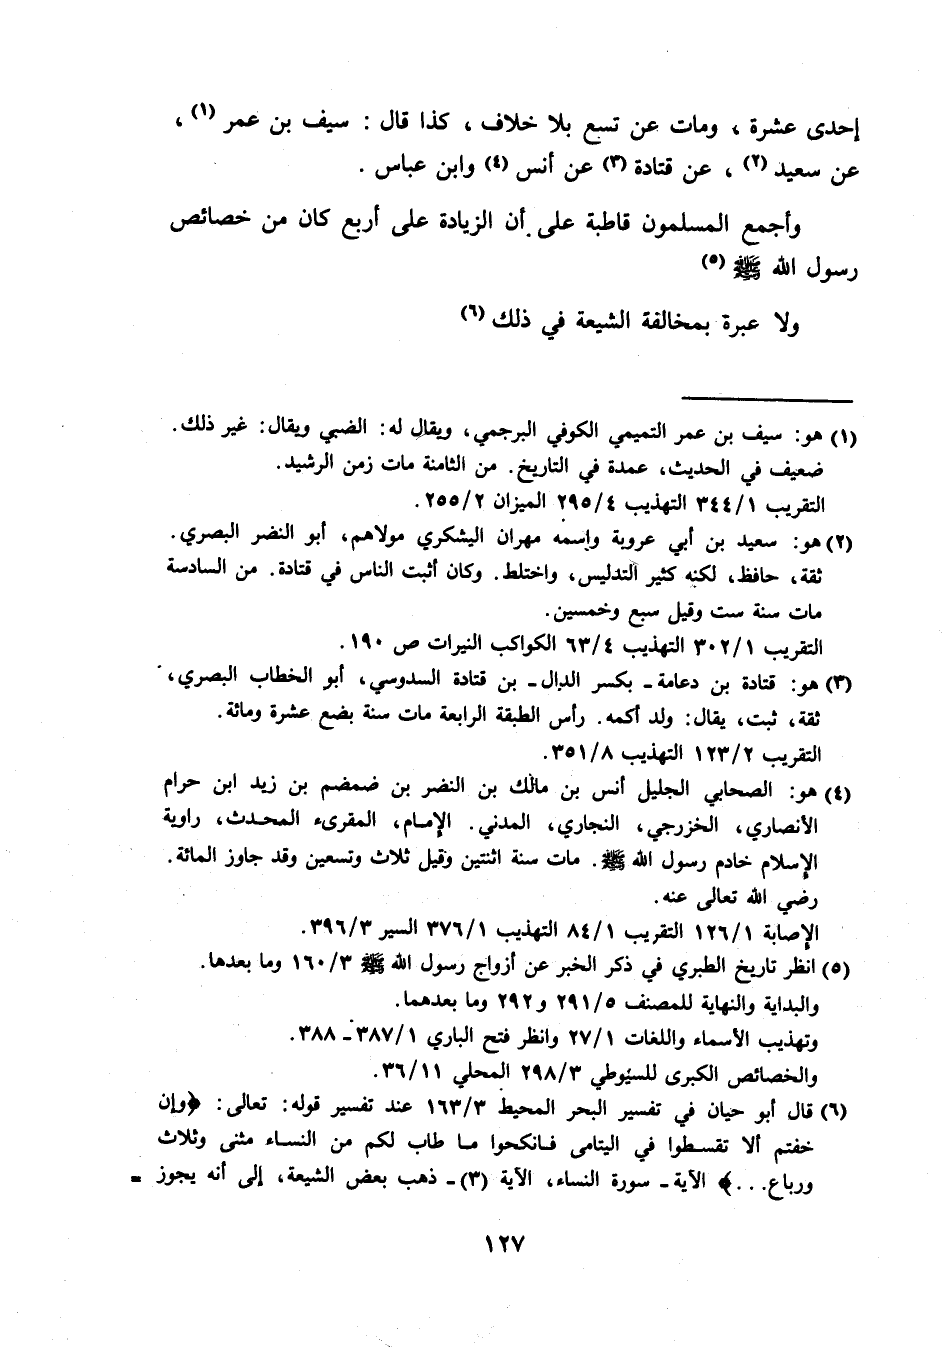 إحدى عشرة ، ومات عن تسع بلا خلاف ، كذا قال : سيف بن عمر (١) ،
عن سعيد (٢) ، عن قتادة (٣) عن أنس (٤) وابن عباس .
وأجمع المسلمون قاطبة على أن الزيادة على أربع كان من خصائص
رسول الله ﷺ (٥)
ولا عبرة بمخالفة الشيعة في ذلك (٦)
(١) هو: سيف بن عمر التميمي الكوفي البرجمي، ويقال له: الضبي ويقال: غير ذلك.
ضعيف في الحديث، عمدة في التاريخ. من الثامنة مات زمن الرشيد.
التقريب ٣٤٤/١ التهذيب ٢٩٥/٤ الميزان ٢٥٥/٢.
(٢) هو: سعيد بن أبي عروبة واسمه مهران اليشكري مولاهم، أبو النضر البصري.
ثقة، حافظ، لكنه كثير التدليس، واختلط. وكان أثبت الناس في قتادة. من السادسة
مات سنة ست وقيل سبع وخمسين.
التقريب ٣٠٢/١ التهذيب ٦٣/٤ الكواكب النيرات ص ١٩٠.
(٣) هو: قتادة بن دعامة - بكسر الدال - بن قتادة السدوسي، أبو الخطاب البصري،
ثقة، ثبت، يقال: ولد أكمه. رأس الطبقة الرابعة مات سنة بضع عشرة ومائة.
التقريب ١٢٣/٢ التهذيب ٣٥١/٨.
(٤) هو: الصحابي الجليل أنس بن مالك بن النضر بن ضمضم بن زيد ابن حرام
الأنصاري، الخزرجي، النجاري، المدني. الإمام، المقرىء المحدث، راوية
الإسلام خادم رسول الله ﷺ. مات سنة اثنتين وقيل ثلاث وتسعين وقد جاوز المائة.
رضي الله تعالى عنه.
الإصابة ١٢٦/١ التقريب ٨٤/١ التهذيب ٣٧٦/١ السير ٣٩٦/٣.
(٥) انظر تاريخ الطبري في ذكر الخبر عن أزواج رسول الله ﷺ ١٦٠/٣ وما بعدها.
والبداية والنهاية للمصنف ٢٩١/٥ و٢٩٢ وما بعدهما.
وتهذيب الأسماء واللغات ٢٧/١ وانظر فتح الباري ٣٨٧/١ - ٣٨٨.
والخصائص الكبرى للسيوطي ٢٩٨/٣ المحلي ٣٦/١١.
(٦) قال أبو حيان في تفسير البحر المحيط ١٦٣/٣ عند تفسير قوله: تعالى: ﴿وإن
خفتم ألا تقسطوا في اليتامى فانكحوا ما طاب لكم من النساء مثنى وثلاث
ورباع...﴾ الآية - سورة النساء، الآية (٣) - ذهب بعض الشيعة، إلى أنه يجوز =
١٢٧